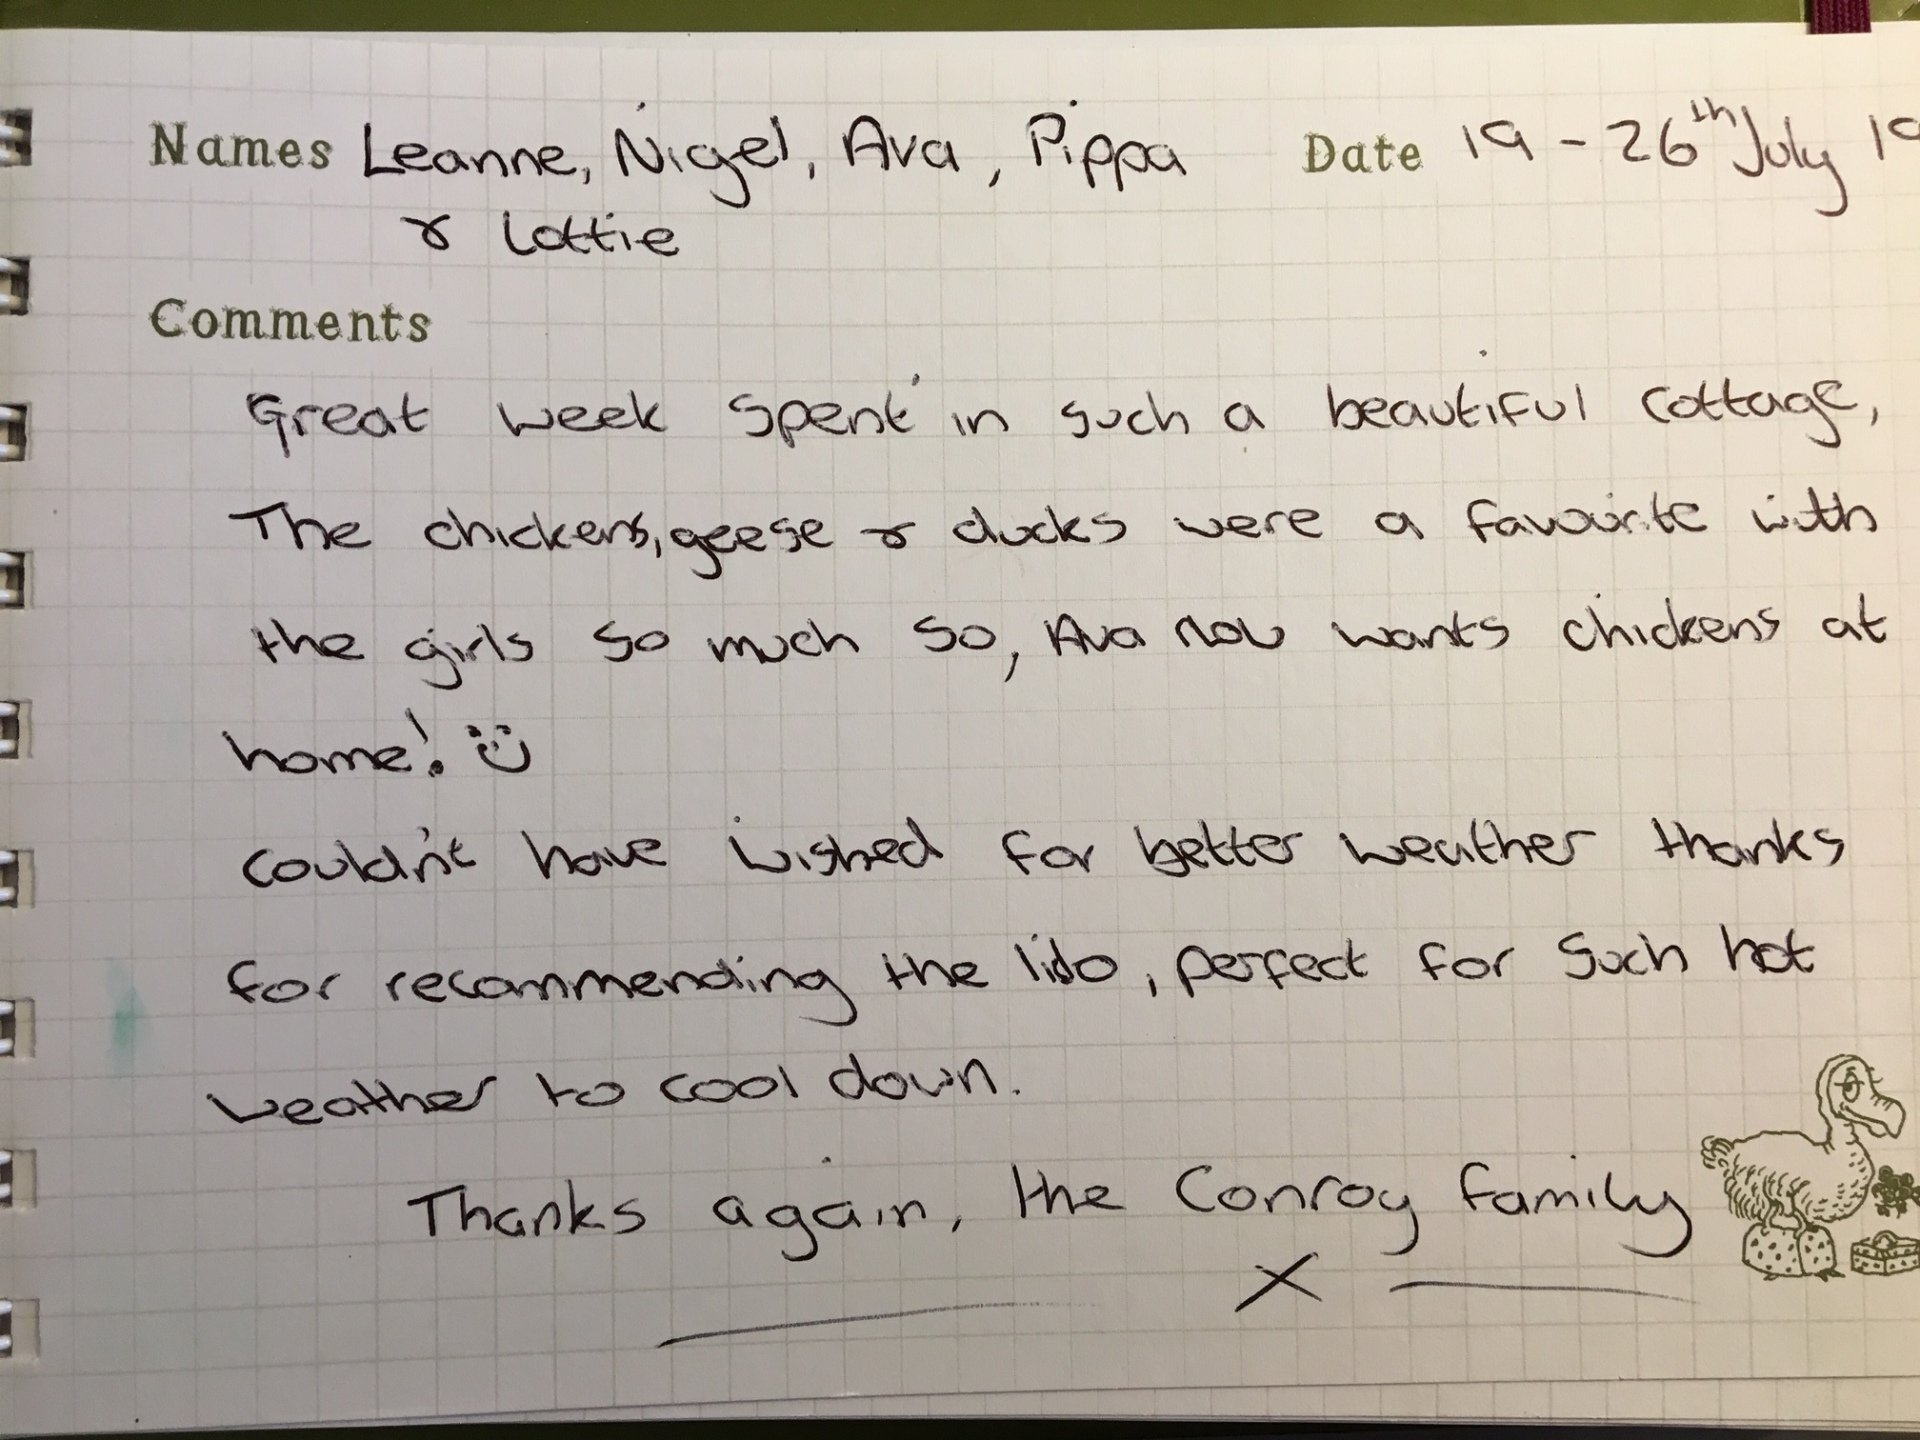 Names Leanne, Nigel, Ava, Pippa Date 19 - 26th July 19
& Lottie
Comments
Great week spent in such a beautiful cottage,
The chickens, geese & ducks were a favourite with
the girls so much so, Ava now wants chickens at
home! :)
Couldn't have wished for better weather thanks
for recommending the lido, perfect for such hot
weather to cool down.
Thanks again, the Conroy family
X